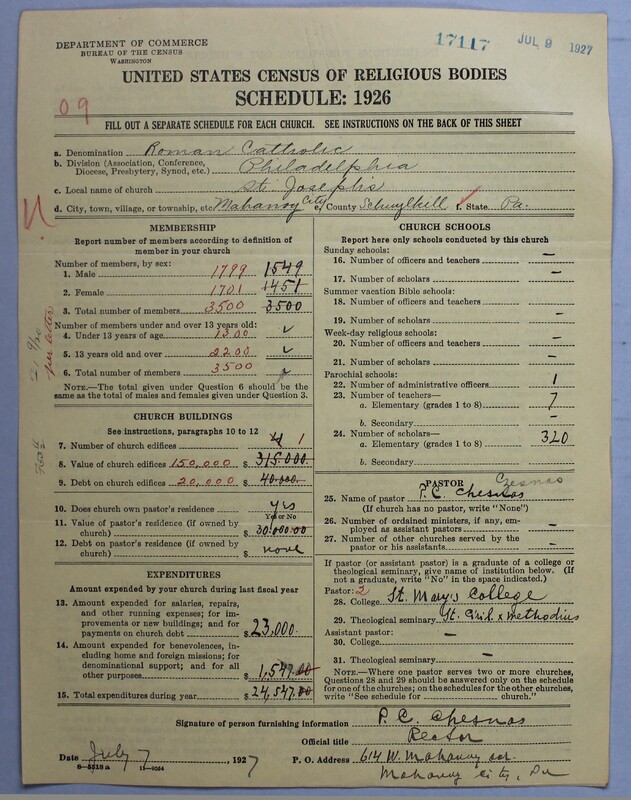 DEPARTMENT OF COMMERCE
BUREAU OF THE CENSUS
WASHINGTON
17117 JUL 9 1927
UNITED STATES CENSUS OF RELIGIOUS BODIES
SCHEDULE: 1926
09
FILL OUT A SEPARATE SCHEDULE FOR EACH CHURCH. SEE INSTRUCTIONS ON THE BACK OF THIS SHEET
a. Denomination Roman Catholic
b. Division (Association, Conference, Diocese, Presbytery, Synod, etc.) Philadelphia
c. Local name of church St. Joseph's
d. City, town, village, or township, etc. Mahanoy City e. County Schuylkill f. State Pa.
MEMBERSHIP
Report number of members according to definition of
member in your church
Number of members, by sex:
1. Male 1799 1549
2. Female 1701 1451
3. Total number of members 3500 3500
Number of members under and over 13 years old:
4. Under 13 years of age 1300 ✓
5. 13 years old and over 2200 ✓
6. Total number of members 3500
NOTE.—The total given under Question 6 should be
same as the total of males and females given under Question 3.
per letter
CHURCH BUILDINGS
See instructions, paragraphs 10 to 12
7. Number of church edifices 4 1
8. Value of church edifices 150,000 $ 315.000
9. Debt on church edifices 20,000 $ 40.000.
10. Does church own pastor's residence? yes
Yes or No
11. Value of pastor's residence (if owned by
church) $ 30.000.00
12. Debt on pastor's residence (if owned by
church) $ none
EXPENDITURES
Amount expended by your church during last fiscal year
13. Amount expended for salaries, repairs,
and other running expenses; for im-
provements or new buildings; and for
payments on church debt $ 23,000.
14. Amount expended for benevolences, in-
cluding home and foreign missions; for
denominational support; and for all
other purposes $ 1,547.00
15. Total expenditures during year $ 24,547.00
CHURCH SCHOOLS
Report here only schools conducted by this church
Sunday schools:
16. Number of officers and teachers —
17. Number of scholars —
Summer vacation Bible schools:
18. Number of officers and teachers
19. Number of scholars —
Week-day religious schools:
20. Number of officers and teachers —
21. Number of scholars —
Parochial schools:
22. Number of administrative officers 1
23. Number of teachers—
a. Elementary (grades 1 to 8) 7
b. Secondary —
24. Number of scholars—
a. Elementary (grades 1 to 8) 320
b. Secondary
PASTOR Czesnas
25. Name of pastor P. C. Chesnas
(If church has no pastor, write "None")
26. Number of ordained ministers, if any, em-
ployed as assistant pastors —
27. Number of other churches served by the
pastor or his assistants —
If pastor (or assistant pastor) is a graduate of a college or
theological seminary, give name of institution below. (If
not a graduate, write "No" in the space indicated.)
Pastor: 2
28. College St. Mary's College
29. Theological seminary St. Ciril & Methodius
Assistant pastor: —
30. College
31. Theological seminary —
NOTE.—Where one pastor serves two or more churches,
Questions 28 and 29 should be answered only on the schedule
for one of the churches; on the schedules for the other churches,
write "See schedule for church."
Signature of person furnishing information P. C. Chesnas
Official title Rector
Date July 7, 1927 P. O. Address 614 W. Mahanoy
Mahanoy City, Pa
8—5518a 11—9354